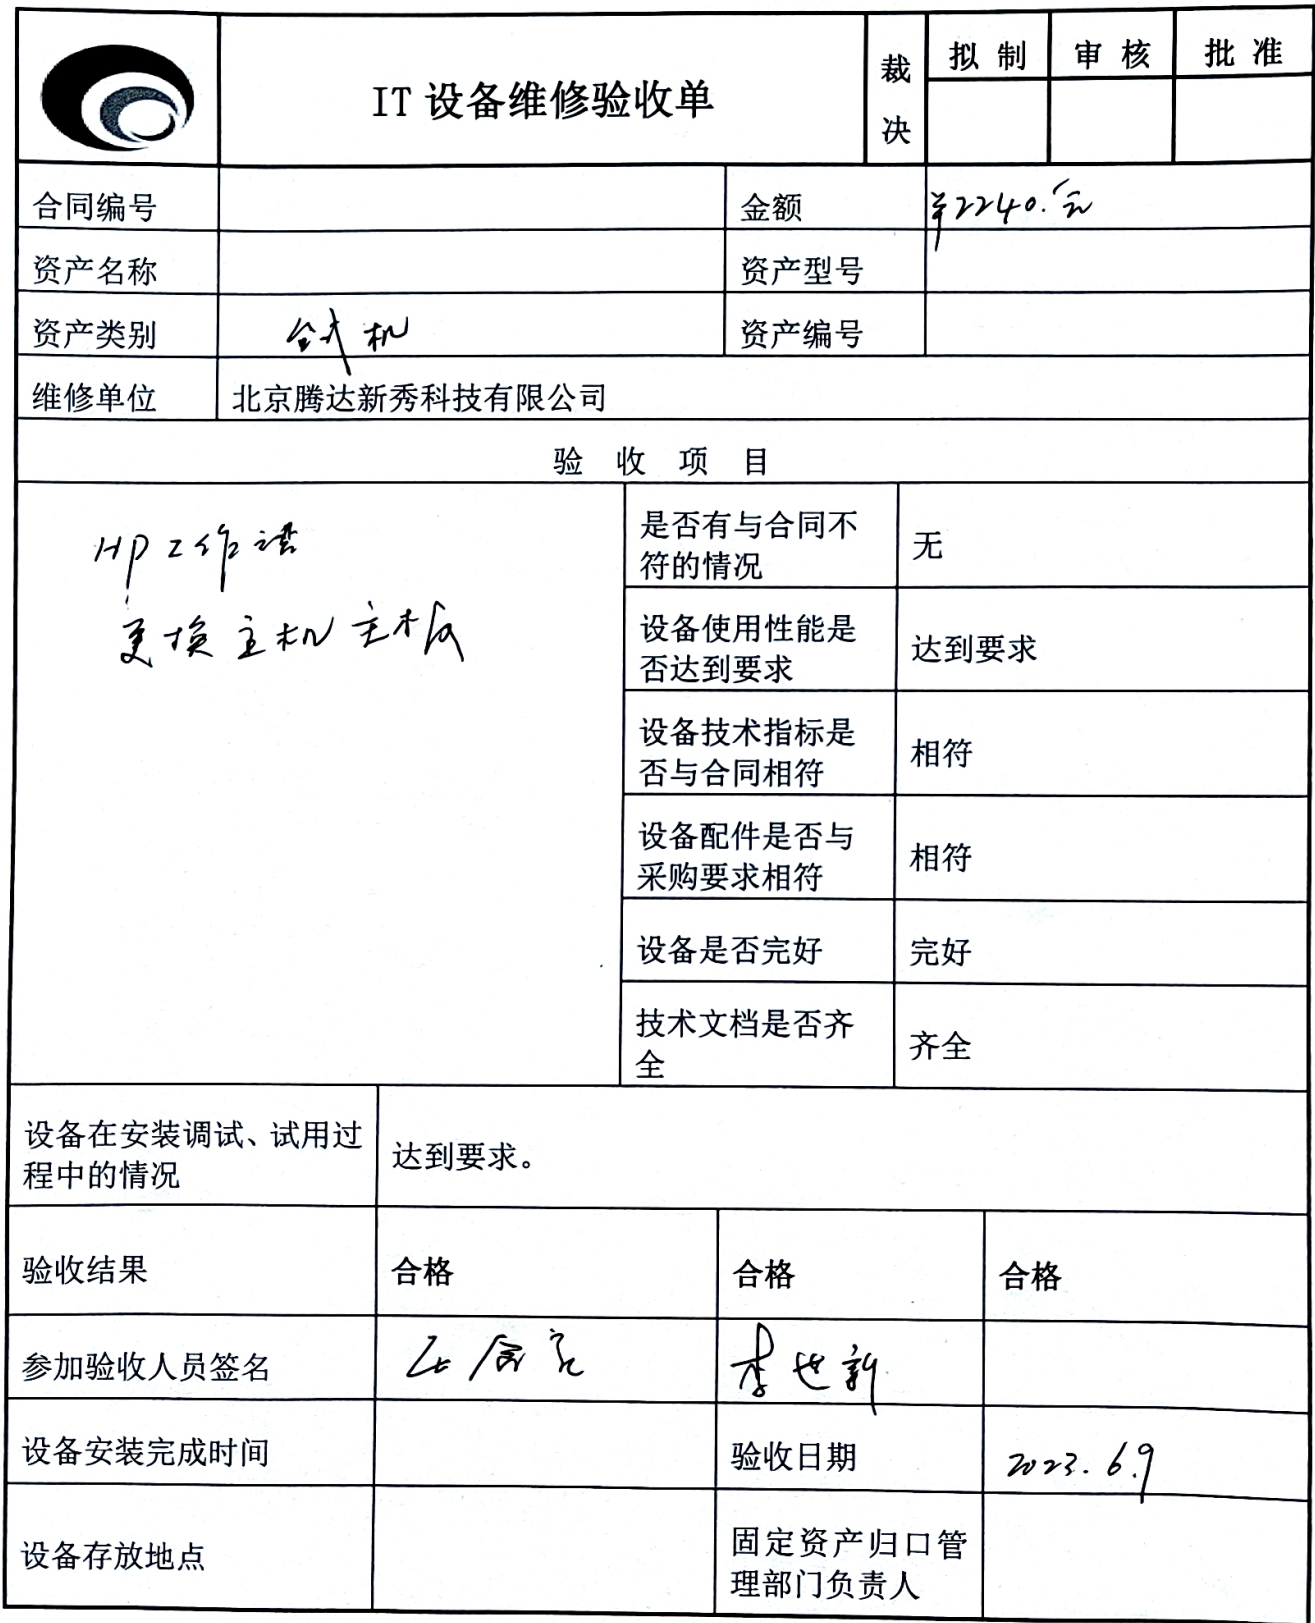 IT 设备维修验收单
裁决
拟 制
审 核
批 准
合同编号
金额
¥2240.元
资产名称
资产型号
资产类别
台式机
资产编号
维修单位
北京腾达新秀科技有限公司
验 收 项 目
HP工作站
更换主机主板
是否有与合同不
符的情况
无
设备使用性能是
否达到要求
达到要求
设备技术指标是
否与合同相符
相符
设备配件是否与
采购要求相符
相符
设备是否完好
完好
技术文档是否齐
全
齐全
设备在安装调试、试用过
程中的情况
达到要求。
验收结果
合格
合格
合格
参加验收人员签名
李世新
设备安装完成时间
验收日期
2023.6.9
设备存放地点
固定资产归口管
理部门负责人